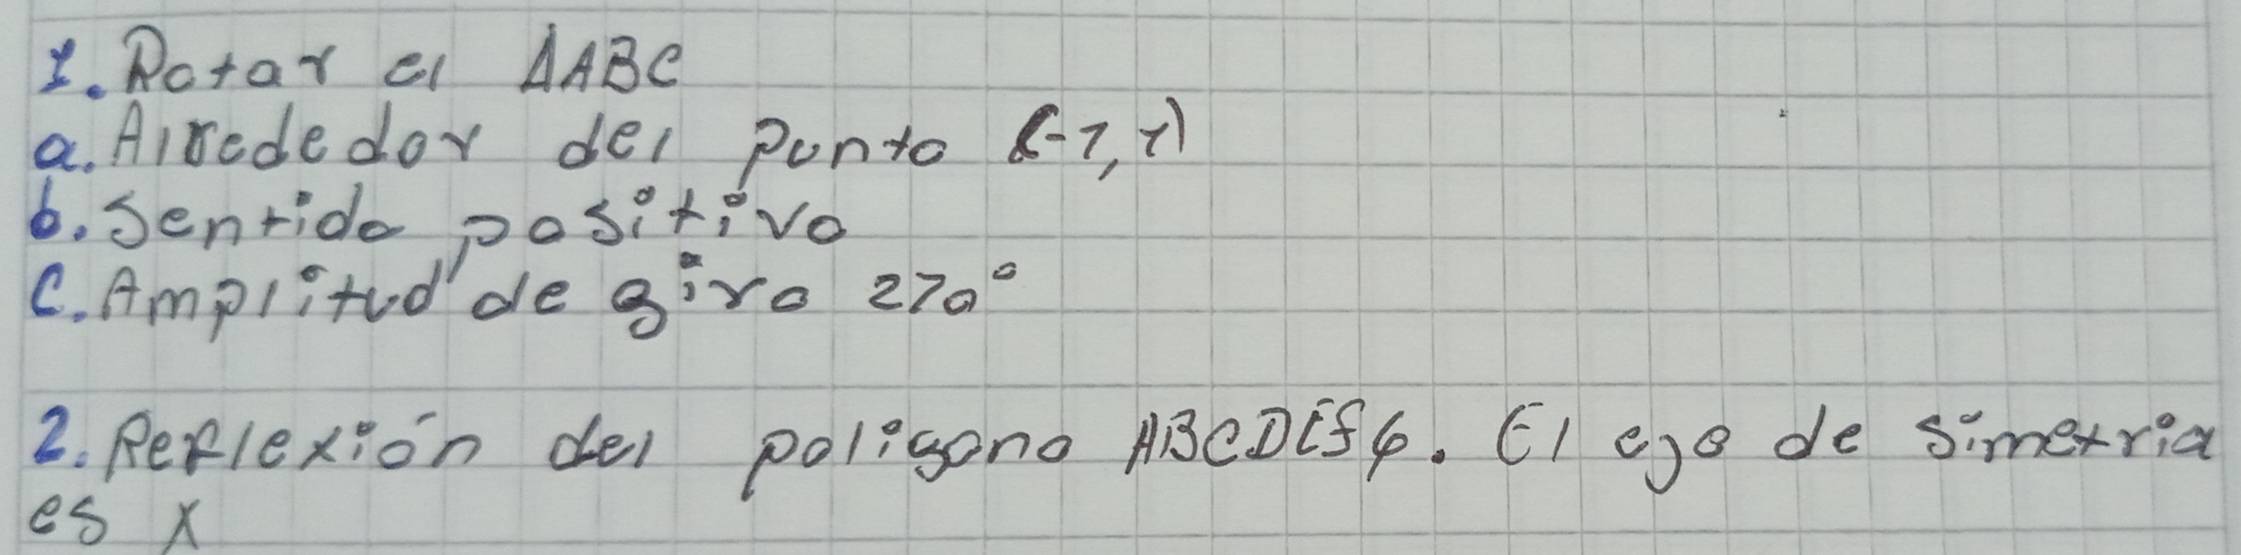 1. Rotar el ΔABC
a. Alrededor del punto (-1, 1)
b. Sentido positivo
C. Amplitud de giro 270°
2. Reflexión del poligono ABCDEFG. El eje de simetria
es X